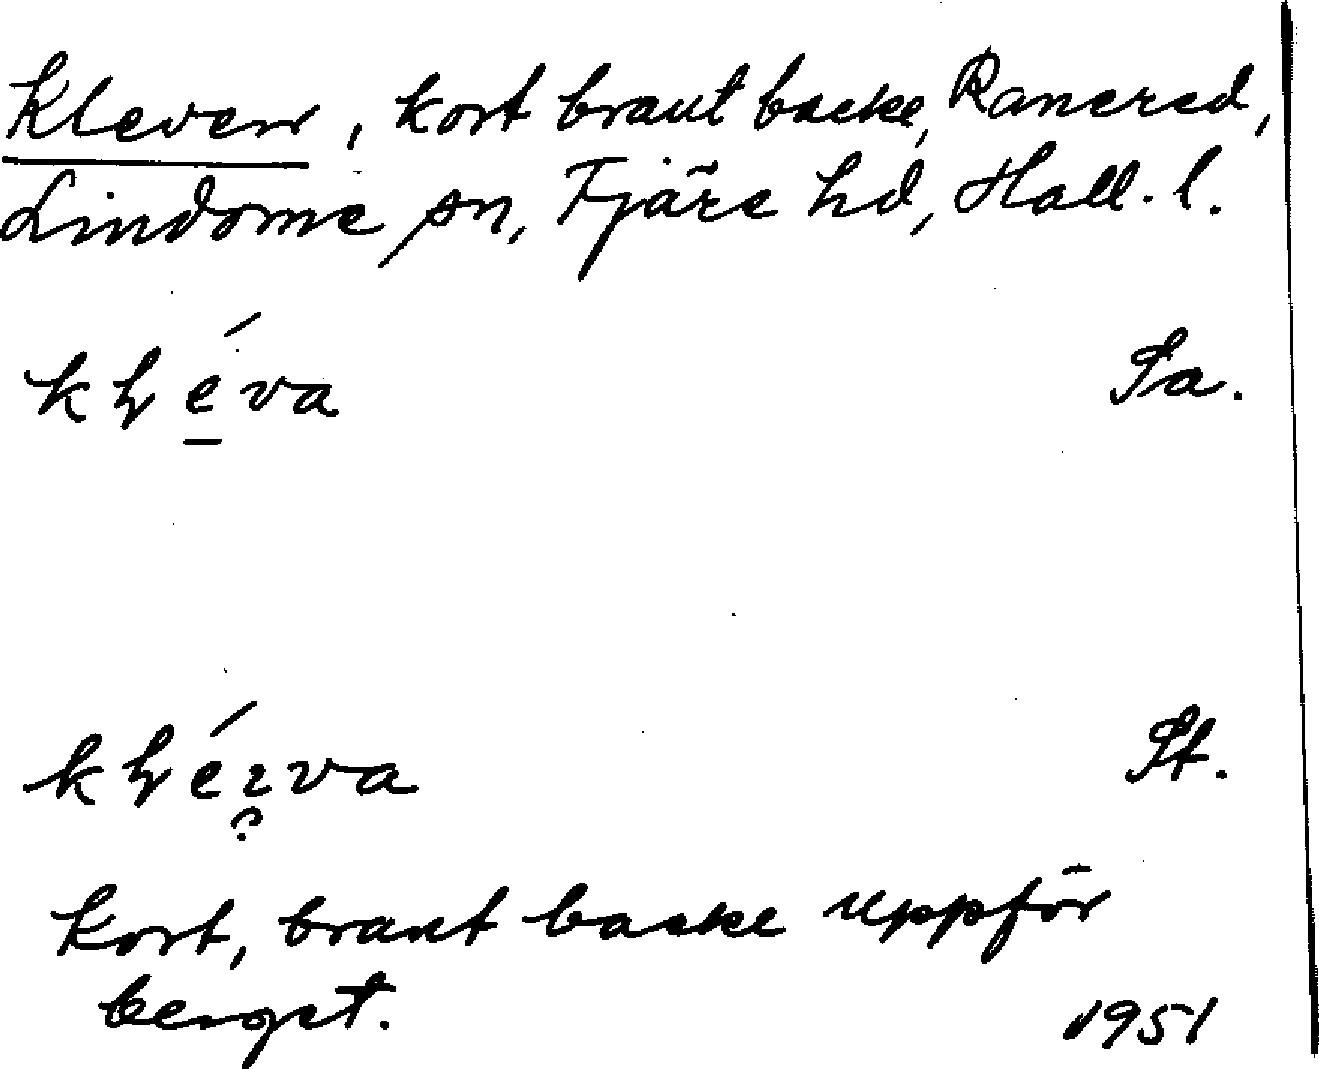 Kleven, kort brant backe, Ranered,
Lindome sn, Fjäre hd, Hall. l.
Sa.
St.
Kort, brant backe uppför
berget.
1951